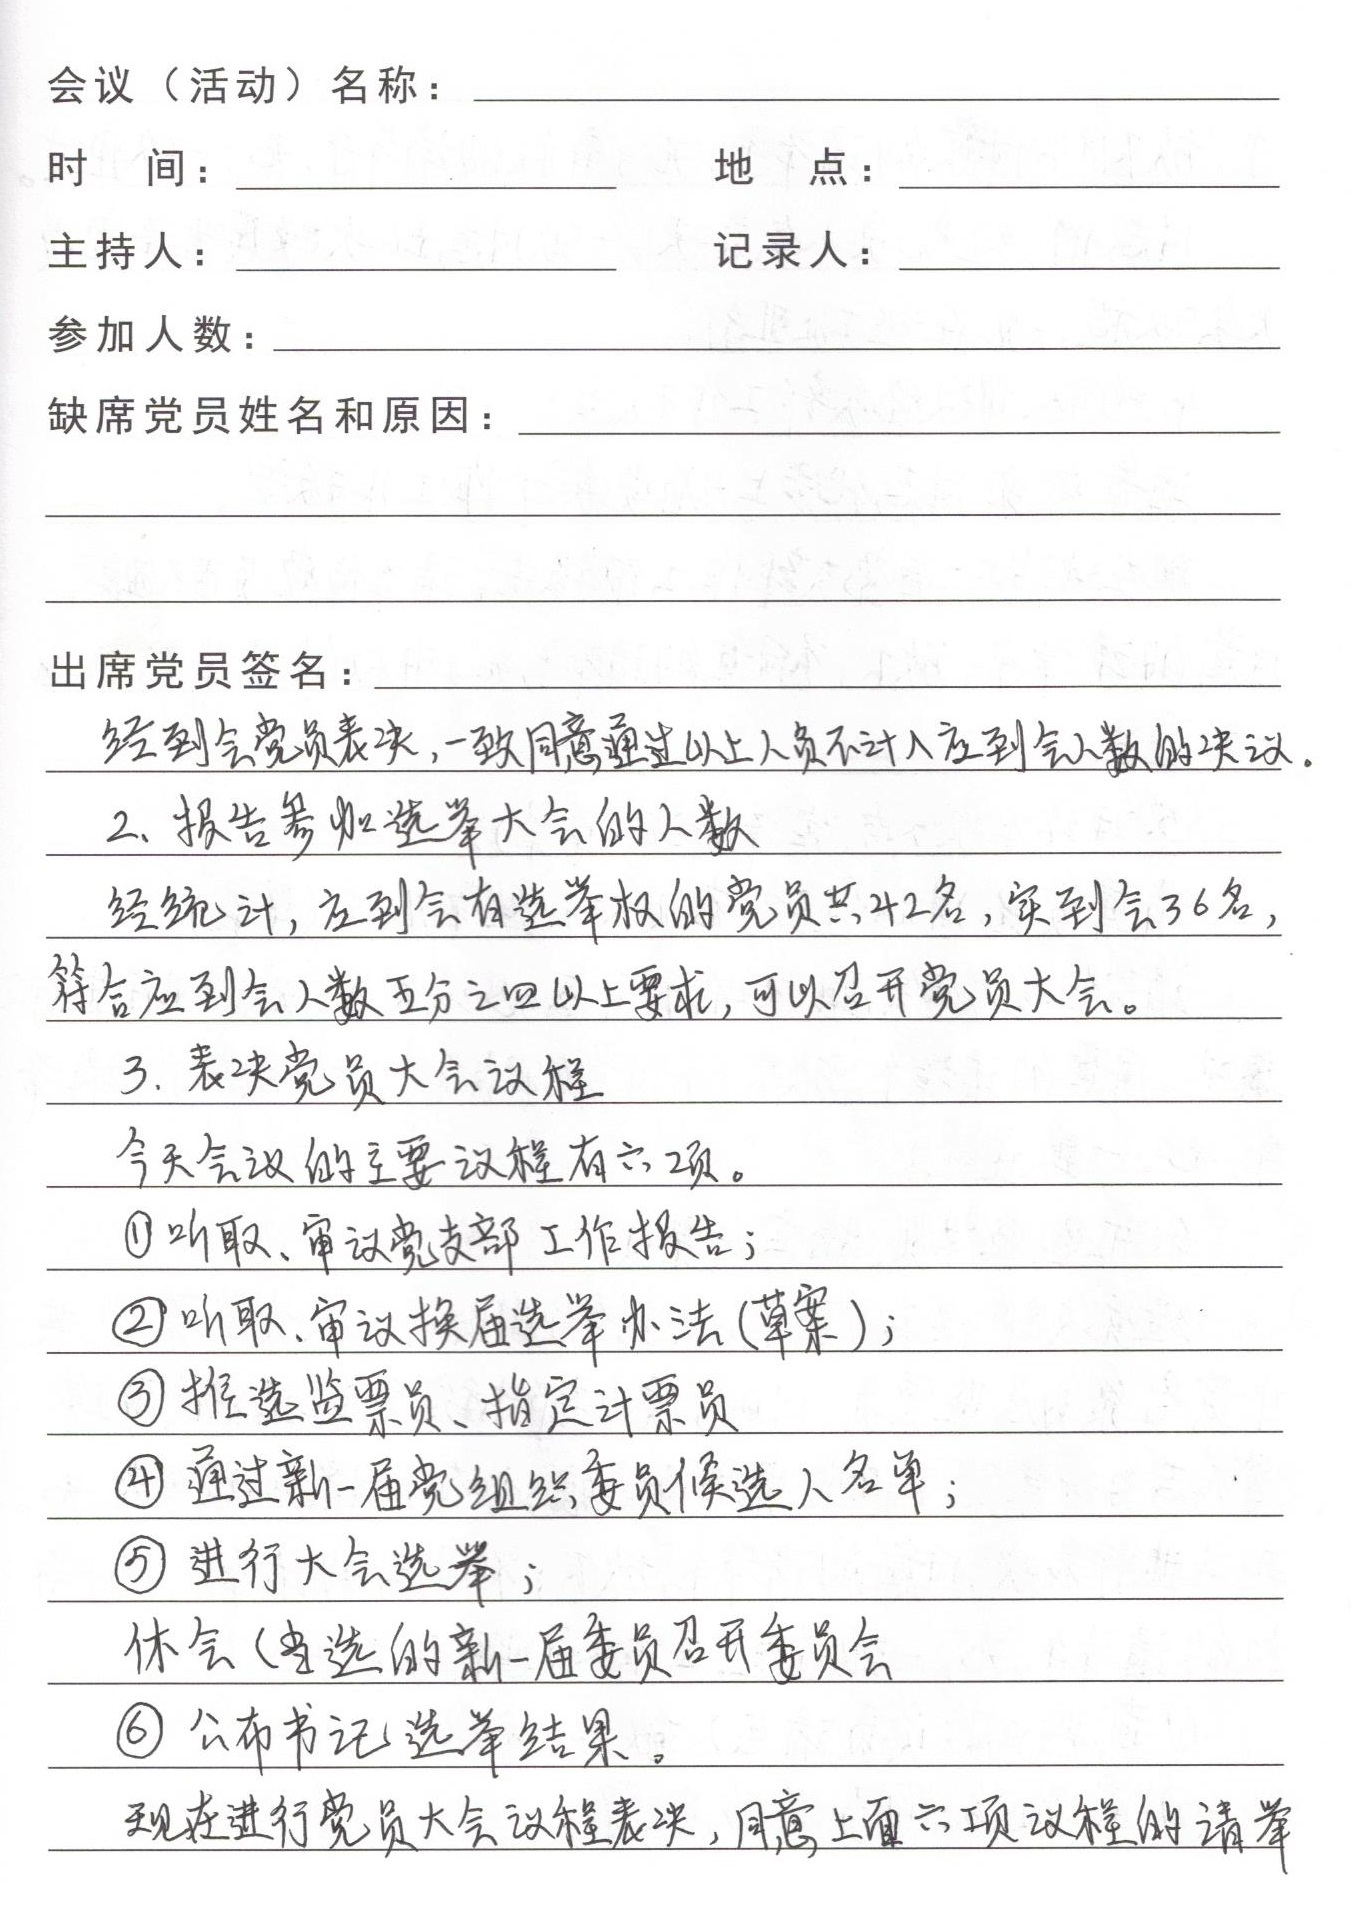 会议（活动）名称：
时　间：　地　点：
主持人：　记录人：
参加人数：
缺席党员姓名和原因：
出席党员签名：
经到会党员表决，一致同意通过以上人员不计入应到会人数的决议。
2、报告参加选举大会的人数
经统计，应到会有选举权的党员共42名，实到会36名，
符合应到会人数五分之四以上要求，可以召开党员大会。
3.表决党员大会议程
今天会议的主要议程有六项。
①听取、审议党支部工作报告；
②听取、审议换届选举办法（草案）；
③推选监票员、指定计票员
④通过新一届党组织委员候选人名单；
⑤进行大会选举；
休会（当选的新一届委员召开委员会
⑥公布书记选举结果。
现在进行党员大会议程表决，同意上面六项议程的请举